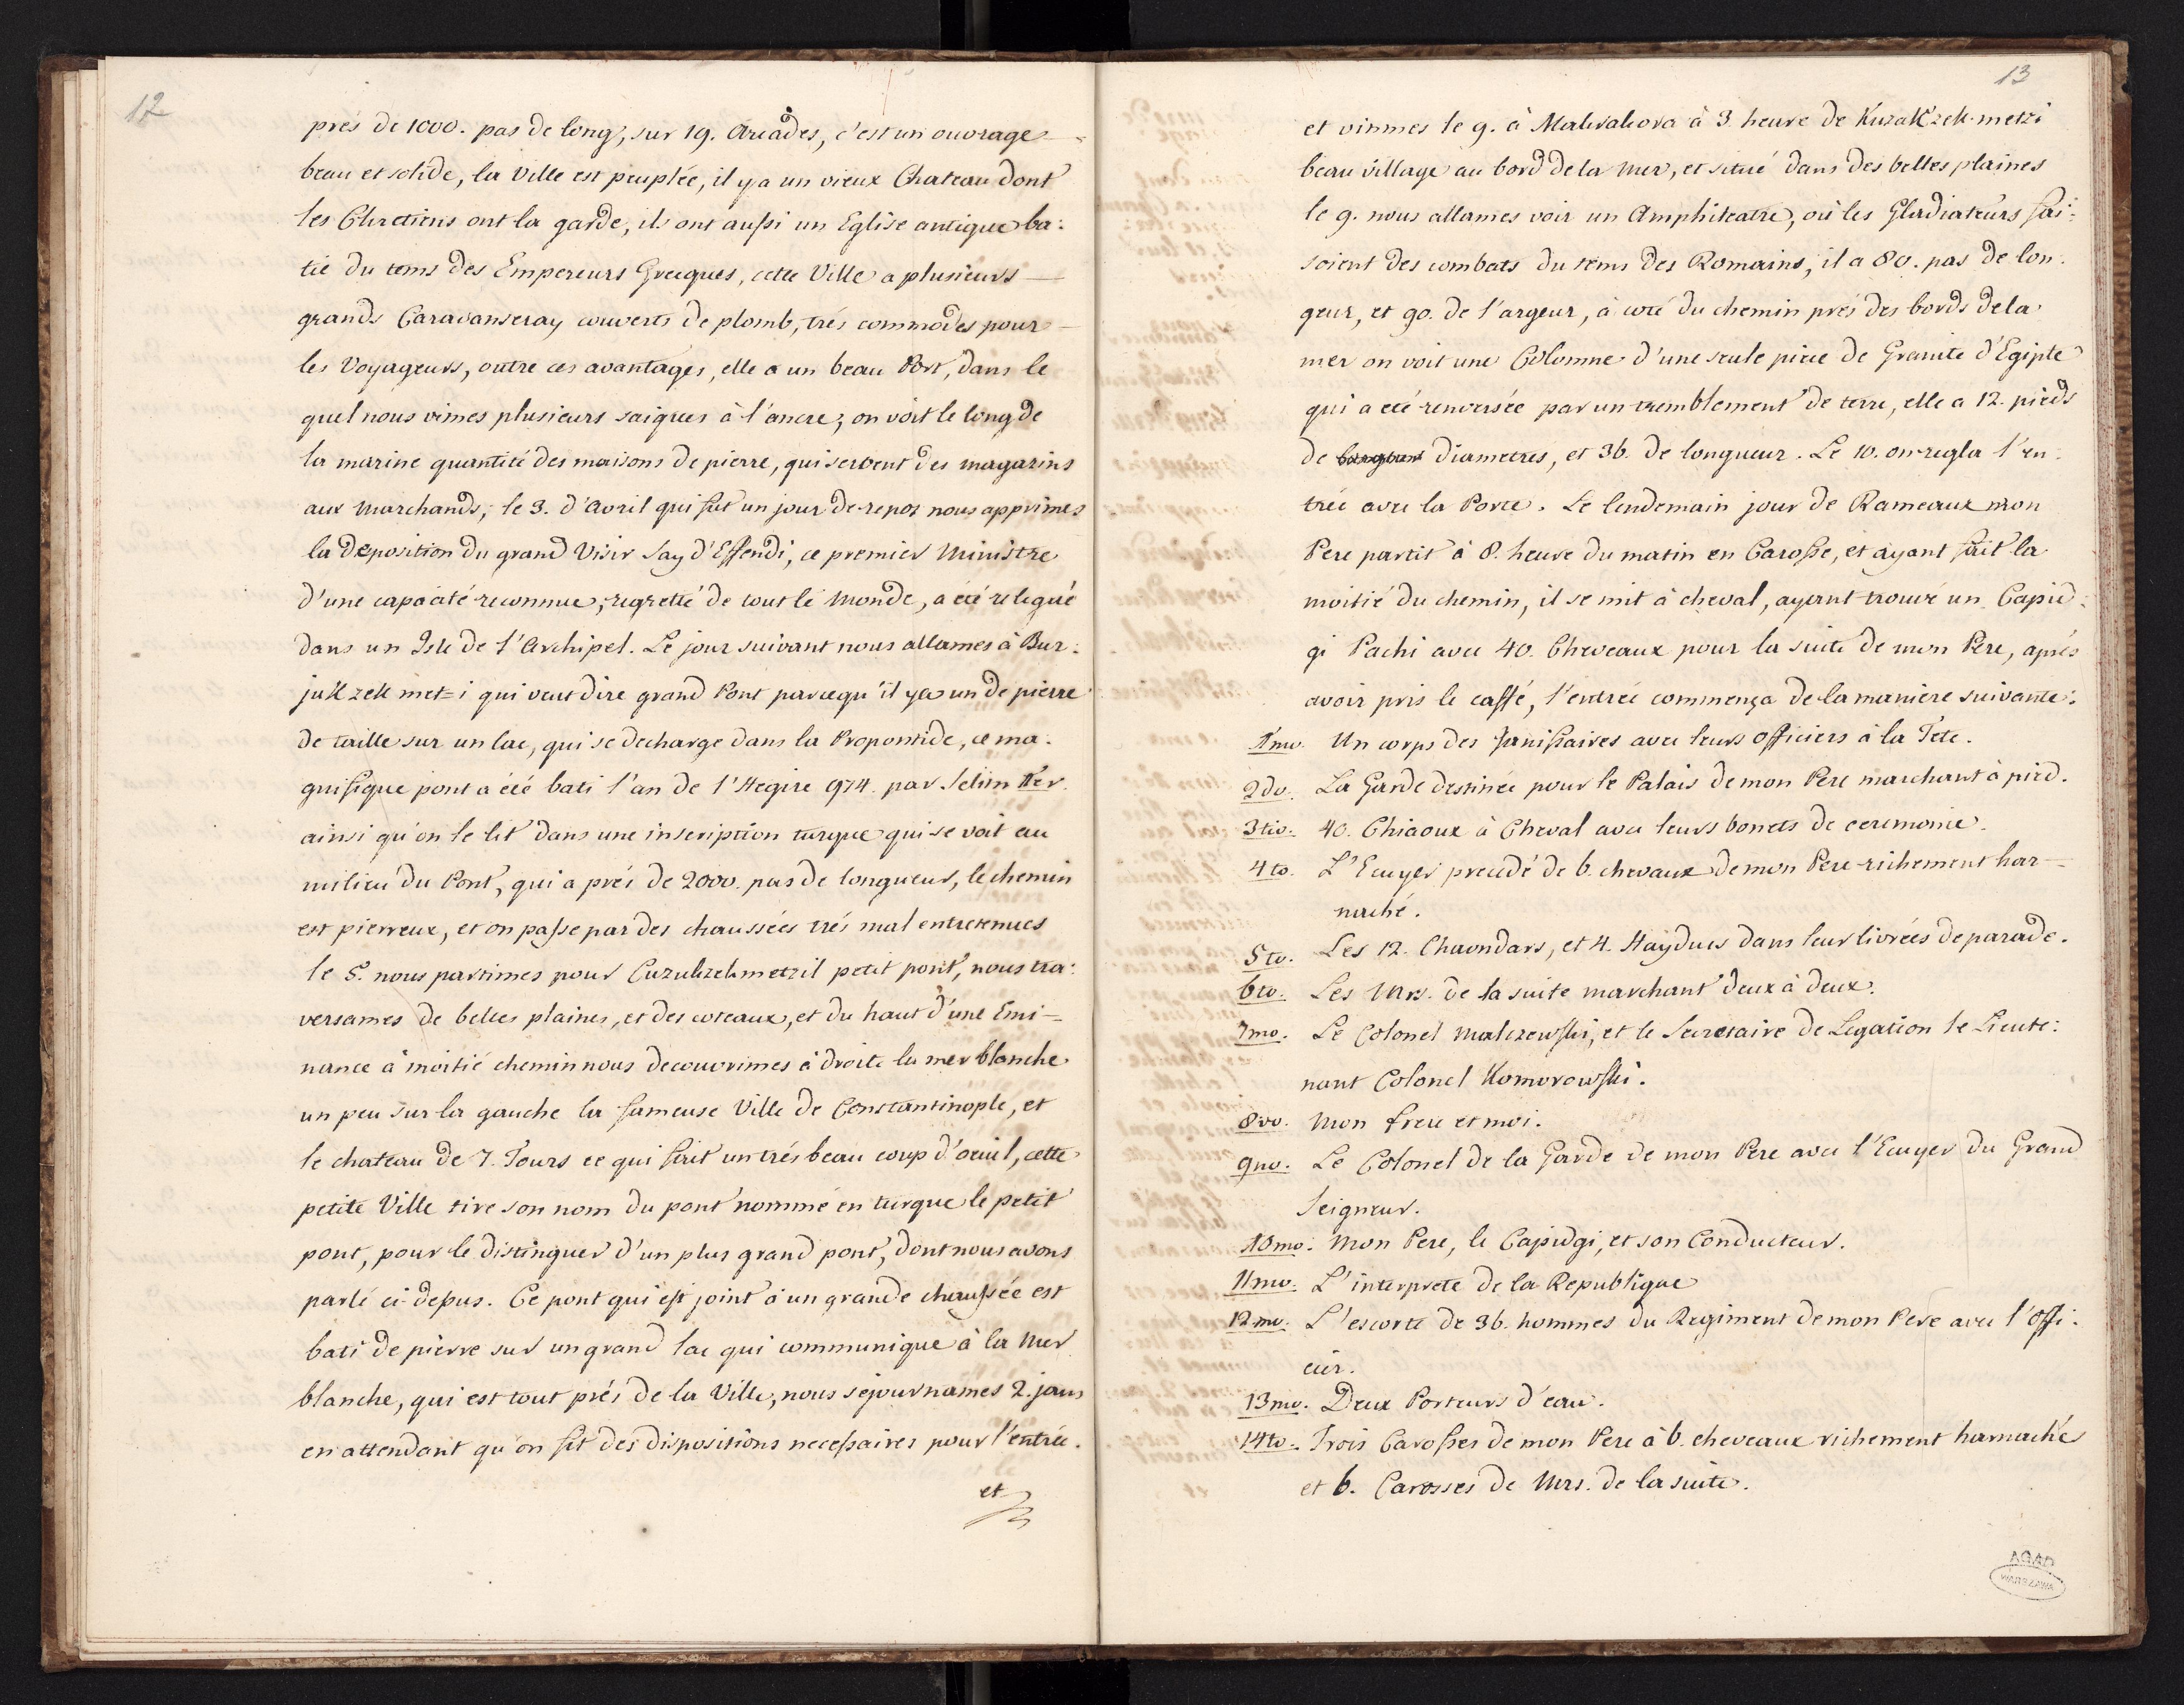 12
prés de 1000. pas de long, sur 19. Arcades, c'est un ouvrage
beau et solide, la Ville est peuplée, il y a un vieux Chateau dont
les Chretiens ont la garde, ils ont aussi un Eglise antique ba:
tie du tems des Empereurs Grecques, cette Ville a plusieurs
grands Caravanseray couverts de plomb, trés commodes pour
les Voyageurs, outre ces avantages, elle a un beau Port, dans le
quel nous vimes plusieurs saigues à l'ancre, on voit le long de
la marine quantité des maisons de pierre, qui servent des magazins
aux marchands, le 3. d'Avril qui fut un jour de repos nous apprimes
la deposition du grand Visir Say d'Effendi, ce premier Ministre
d'une capacité reconnue, regretté de tout le Monde, a été relegué
dans un Isle de l'Archipel. Le jour suivant nous allames à Bur:
juk zek met=i qui veut dire grand Pont parcequ'il y a un de pierre
de taille sur un lac, qui se decharge dans la Propontide, ce ma:
gnifique pont a été bati l'an de l'Hegire 974. par Selim IIer
ainsi qu'on le lit dans une inscription turque qui se voit au
milieu du Pont, qui a prés de 2000. pas de longueur, le chemin
est pierreux, et on passe par des chaussées trés mal entretenues
le 5. nous partimes pour Cuzukzekmetzil petit pont, nous tra:
versames de belles plaines, et des coteaux, et du haut d'une Emi=
nance à moitié chemin nous decouvrimes à droite la mer blanche
un peu sur la gauche la fameuse Ville de Constantinople, et
le chateau de 7. Tours ce qui fait un trés beau coup d'oeuil, cette
petite Ville tire son nom du pont nommé en turque le petit
pont, pour le distinguer d'un plus grand pont, dont nous avons
parlé ci-depus. Ce pont qui est joint à un grande chaussée est
bati de pierre sur un grand lac qui communique à la Mer
blanche, qui est tout prés de la Ville, nous sejournames 2. jours
en attendant qu'on fit des dispositions necessaires pour l'entrée.
et
13
et vinmes le 9. à Makrakova à 3. heure de Kuzakzek-metzi
beau village au bord de la mer, et situé dans des belles plaines
le 9. nous allames voir un Amphiteatre, où les Gladiateurs fai:
soient des combats du tems des Romains, il a 80. pas de lon:
geur, et 90. de l'argeur, à coté du chemin prés des bords de la
mer on voit une Colomne d'une seule piece de Granite d'Egipte
qui a été renversée par un tremblement de terre, elle a 12. pieds
de diametres, et 36. de longueur. Le 10. on regla l'en:
trée avec la Porte. Le lendemain jour de Rameaux mon
Pere partit à 8. heure du matin en Carosse, et ayant fait la
moitié du chemin, il se mit à cheval, ayant trouvé un Capid:
gi Pachi avec 40. Cheveaux pour la suite de mon Pere, aprés
avoir pris le caffé, l'entrée commença de la maniere suivante:
1mo. Un corps des Janissaires avec leurs officiers à la Tete.
2do. La Garde destinée pour le Palais de mon Pere marchant à pied.
3tio. 40. Chiaoux à Cheval avec leurs bonets de ceremoine.
4to. L'Ecuyer precedé de 6. chevaux de mon Pere richement har=
naché.
5to. Les 12. Chaondars, et 4. Hayducs dans leur livrées de parade.
6to. Les Mrs. de la suite marchant deux à deux.
7mo. Le Colonel Malczewski, et le Secretaire de Legation le Lieute:
nant Colonel Komorowski.
8vo. Mon frere et moi.
9no. Le Colonel de la Garde de mon Pere avec l'Ecuyer du Grand
Seigneur.
10mo. Mon Pere, le Capidgi, et son Conducteur.
11mo. L'interprete de la Republique
12mo. L'escorte de 36. hommes du Regiment de mon Pere avec l'Offi:
cier.
13mo. Deux Porteurs d'eau.
14to. Trois Carosses de mon Pere à 6. cheveaux richement harnachés
et 6. Carosses de Mrs. de la suite.
AGAD
WARSZAWA